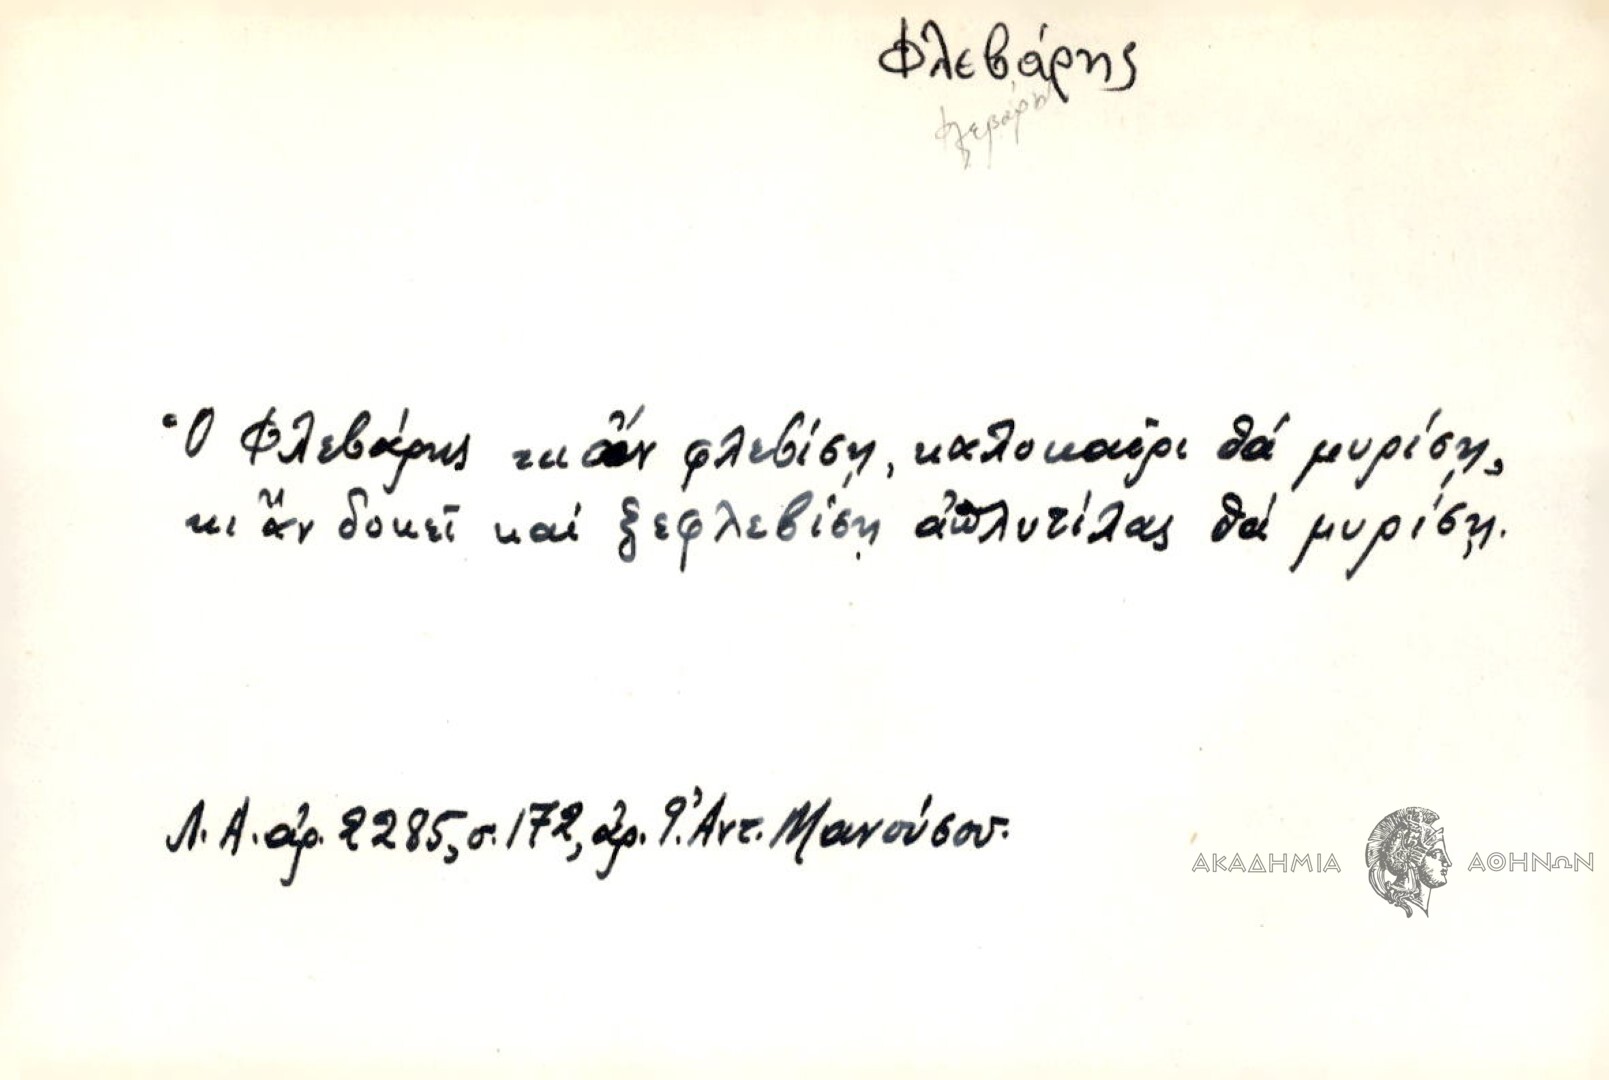 Φλεβάρης
Φλεβάρη
Ὁ Φλεβάρης κι ἄν φλεβίσῃ, καλοκαῖρι θά μυρίσῃ,
κι ἄν δοκεῖ καί ξεφλεβίσῃ ἀπλυτίλας θά μυρίσῃ.
Λ. Α. ἀρ. 2285, σ. 172, ἀρ. 9. Ἀντ. Μανούσου.
ΑΚΑΔΗΜΙΑ ΑΘΗΝΩΝ